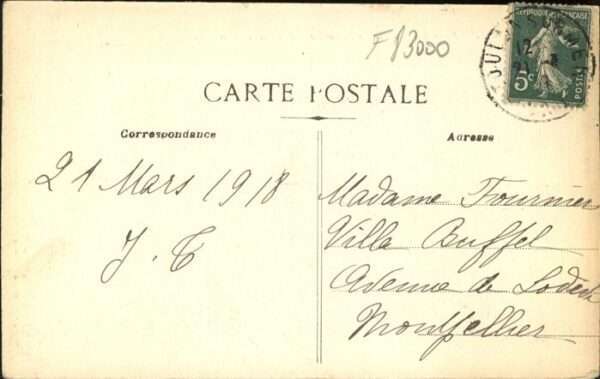 F 83000
RÉPUBLIQUE FRANÇAISE
5c
POSTES
CARTE POSTALE
Correspondance
Adresse
21 Mars 1918
Madame Fournier
Villa Buffel
J. T
Avenue de Lodève
Montpellier